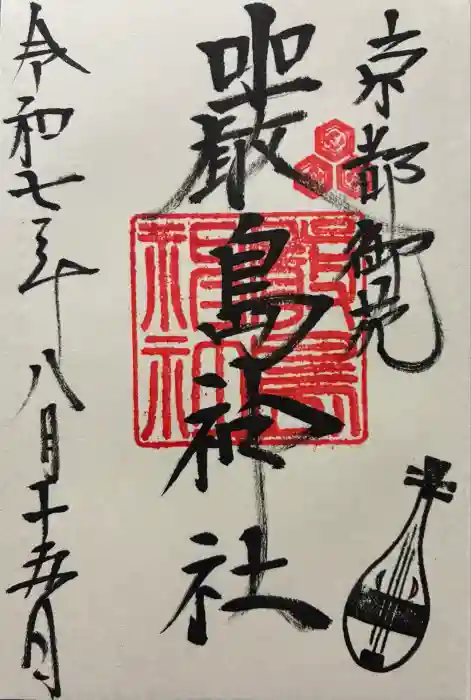 京都御苑
嚴島神社
令和七年八月十五日